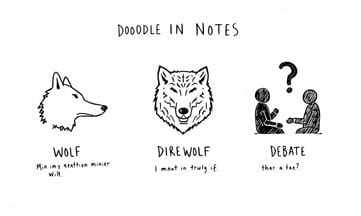 DOOODLE IN NOTES
WOLF
Min imy nexttion minier
Wilt.
DIREWOLF
I moat in truly if.
DEBATE
thar a toe?.
?